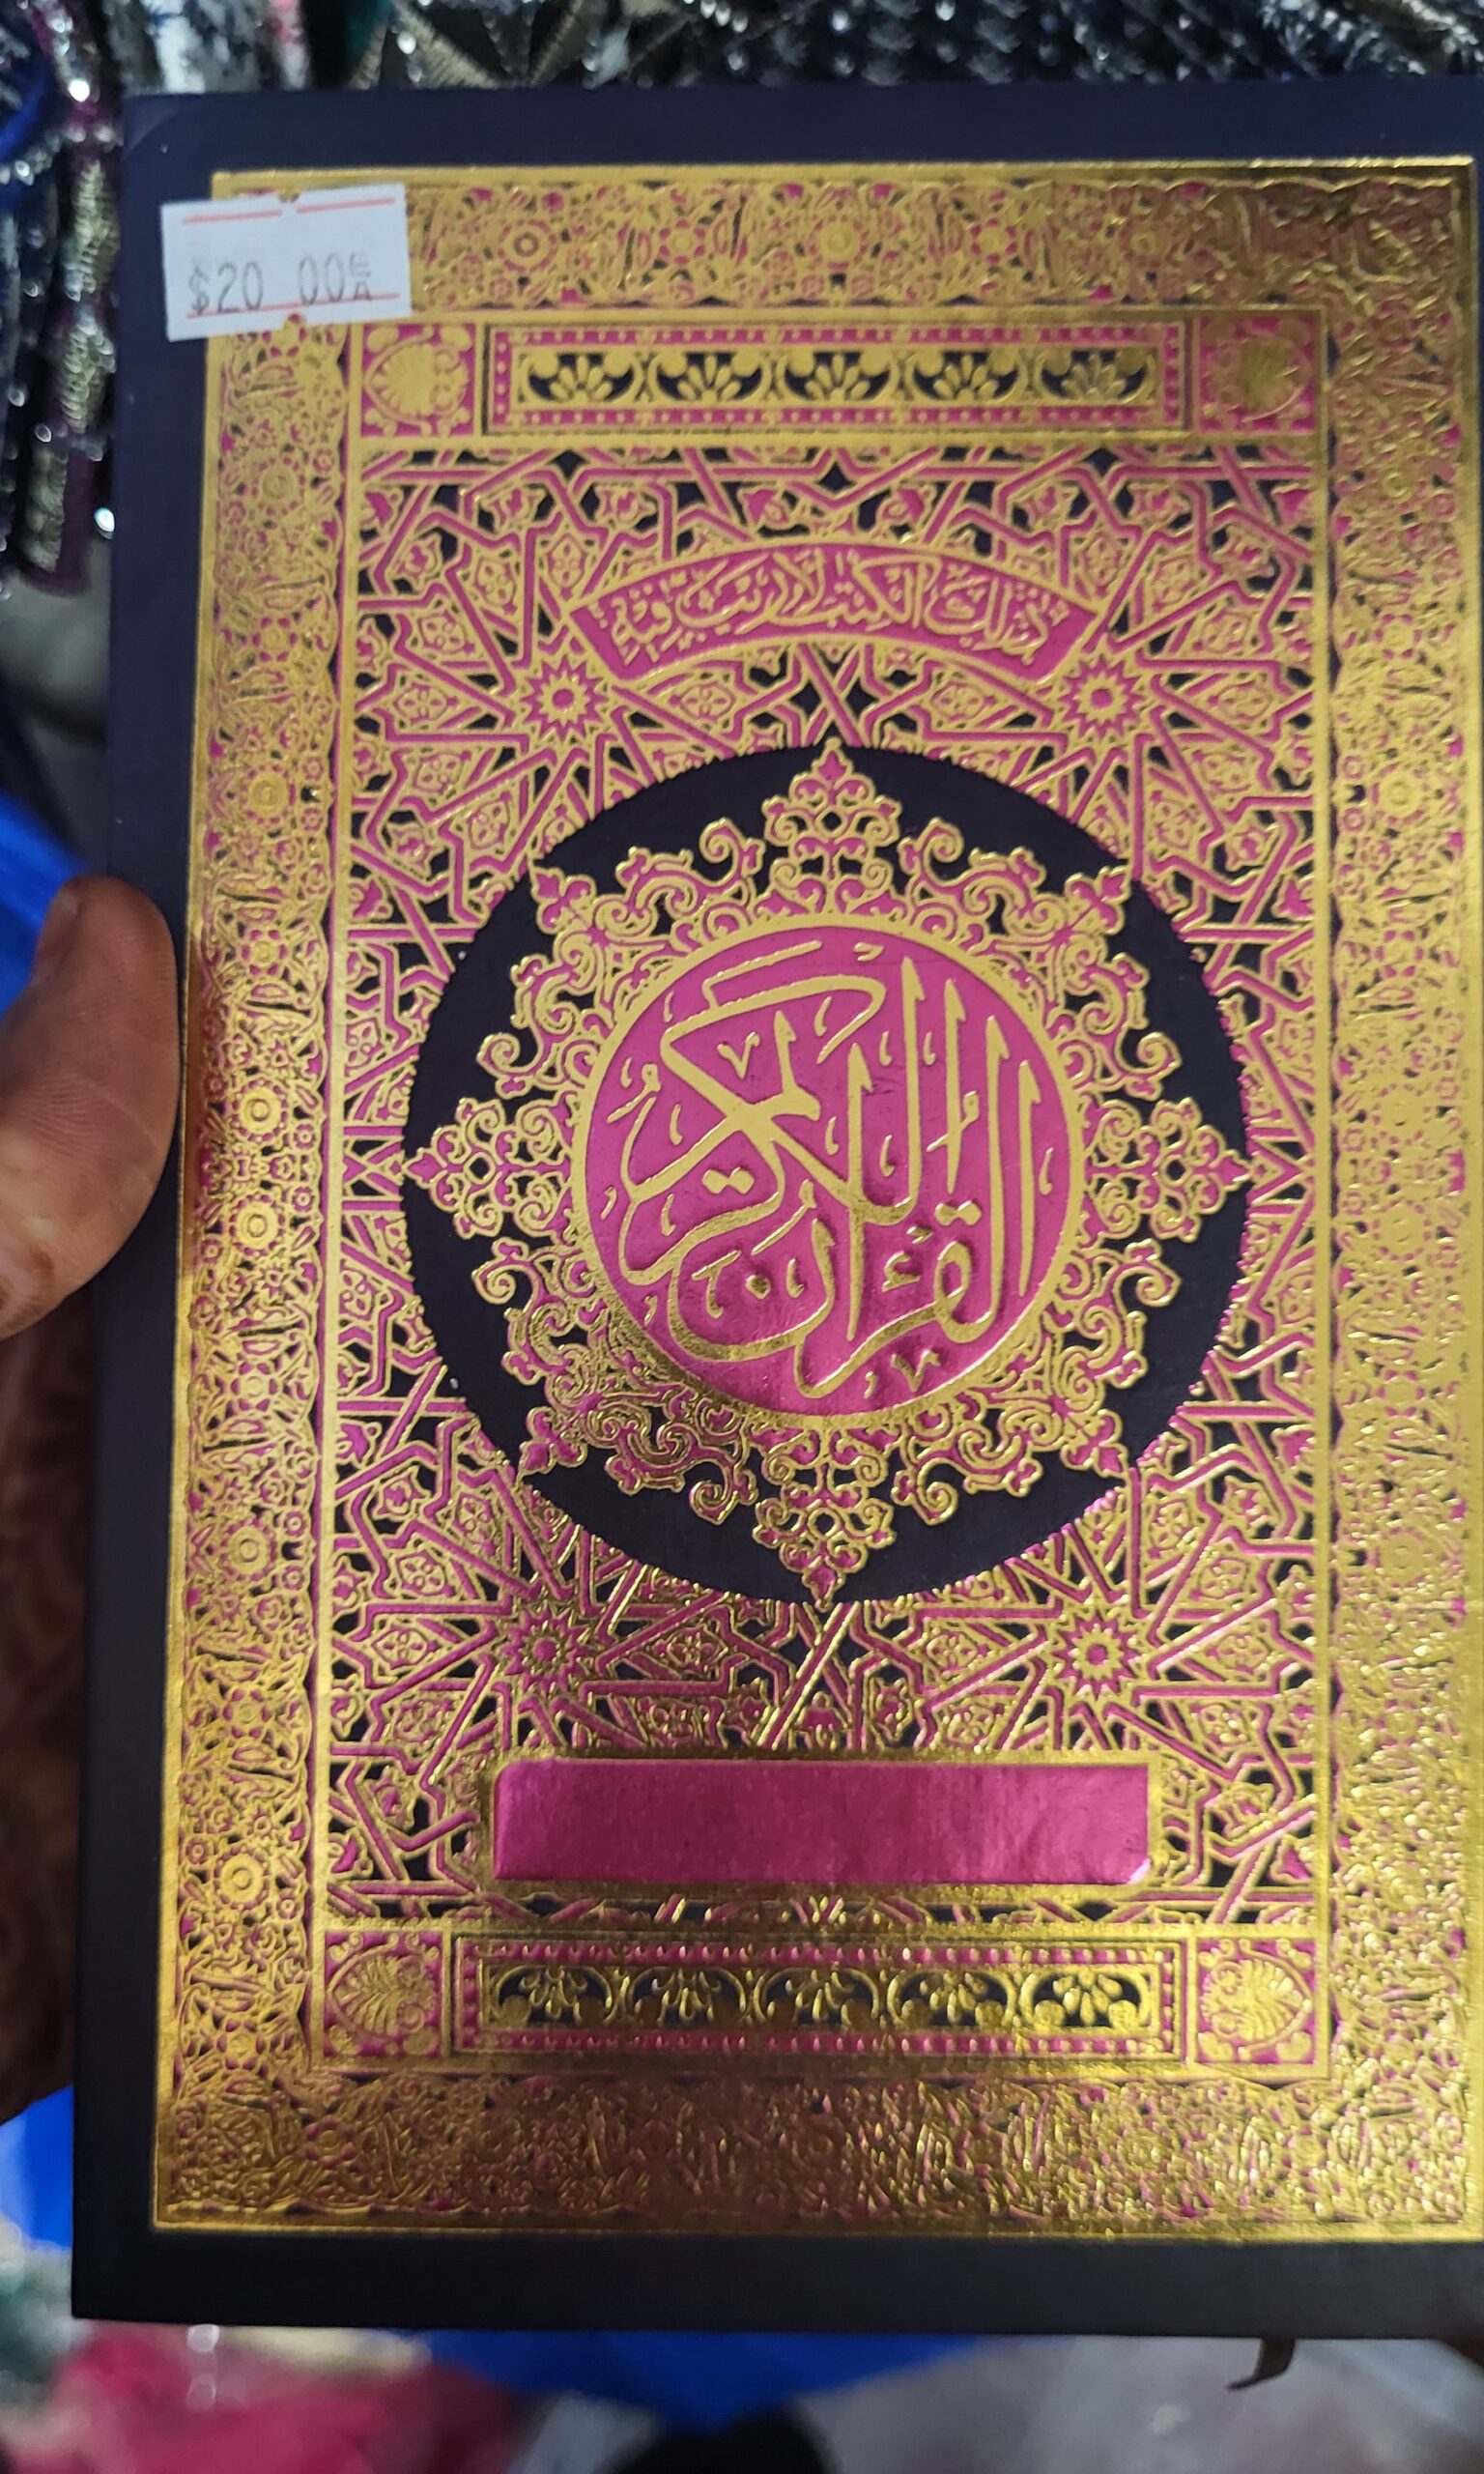 $20 00 EA
ذَٰلِكَ الْكِتَٰبُ لَا رَيْبَ فِيهِ
الْقُرْآنُ الْكَرِيمُ